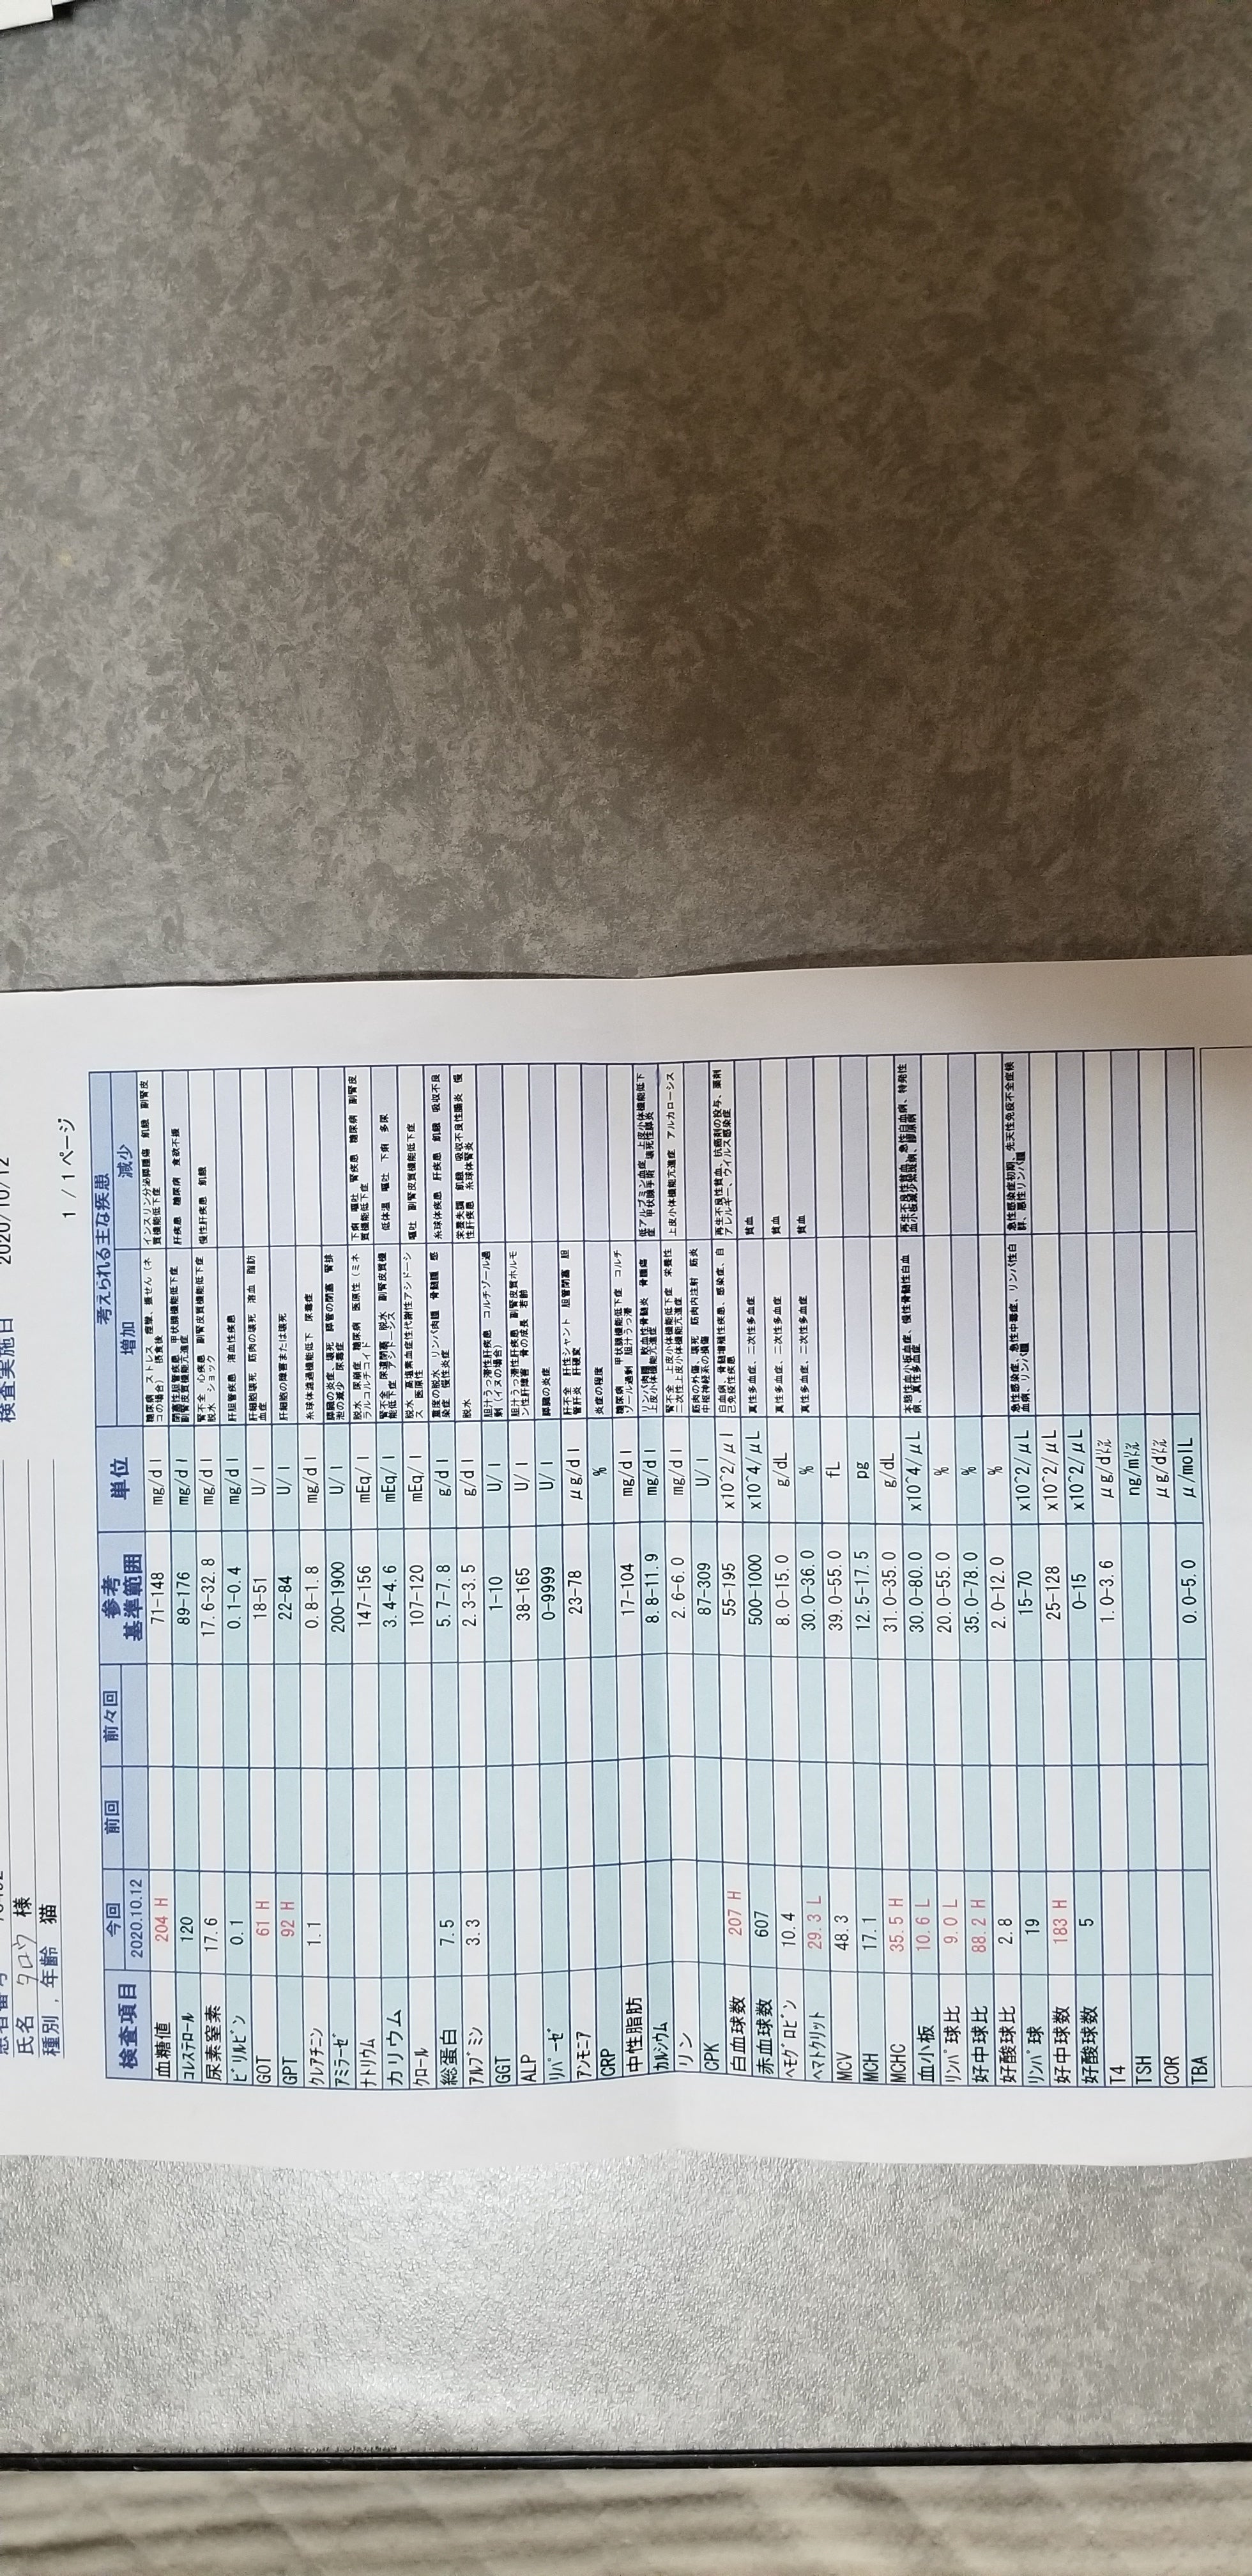 検査実施日 2020/10/12
氏名 タロウ 様
種別, 年齢 猫
1 / 1 ページ
検査項目 今回 前回 前々回 参考基準範囲 単位 考えられる主な疾患
2020.10.12 増加 減少
血糖値 204 H 71-148 mg/dl 糖尿病 ストレス 痙攣、振せん(ネコの場合) 摂食後 インスリン分泌膵腫瘍 飢餓 副腎皮質機能低下症
コレステロール 120 89-176 mg/dl 閉塞性胆管疾患、甲状腺機能低下症 副腎皮質機能亢進症 肝疾患 糖尿病 食欲不振
尿素窒素 17.6 17.6-32.8 mg/dl 腎不全 心疾患 副腎皮質機能低下症 脱水 ショック 慢性肝疾患 飢餓
ビリルビン 0.1 0.1-0.4 mg/dl 肝胆管疾患 溶血性疾患
GOT 61 H 18-51 U/l 肝細胞壊死 筋肉の壊死 溶血 脂肪血症
GPT 92 H 22-84 U/l 肝細胞の障害または壊死
クレアチニン 1.1 0.8-1.8 mg/dl 糸球体濾過機能低下 尿毒症
アミラーゼ 200-1900 U/l 膵臓の炎症、壊死 膵管の閉塞 腎排泄の減少 尿毒症
ナトリウム 147-156 mEq/l 脱水 尿崩症 糖尿病 医原性(ミネラルコルチコイド 下痢 嘔吐 腎疾患 糖尿病 副腎皮質機能低下症
カリウム 3.4-4.6 mEq/l 腎不全 尿道閉塞 脱水 副腎皮質機能低下症 アシドーシス 低体温 嘔吐 下痢 多尿
クロール 107-120 mEq/l 脱水 高塩素血症性代謝性アシドーシス 医原性 嘔吐 副腎皮質機能低下症
総蛋白 7.5 5.7-7.8 g/dl 重度の脱水 リンパ肉腫 骨髄腫 感染症 慢性炎症 糸球体疾患 肝疾患 飢餓 吸収不良
アルブミン 3.3 2.3-3.5 g/dl 脱水 栄養失調 飢餓 吸収不良性腸炎 慢性肝疾患 糸球体腎炎
GGT 1-10 U/l 胆汁うっ滞性肝疾患 コルチゾール過剰(イヌの場合)
ALP 38-165 U/l 胆汁うっ滞性肝疾患 副腎皮質ホルモン性肝障害 骨の成長 若齢
リパーゼ 0-9999 U/l 膵臓の炎症
アンモニア 23-78 μg/dl 肝不全 肝性シャント 胆管閉塞 胆管肝炎 肝硬変
CRP % 炎症の程度
中性脂肪 17-104 mg/dl 糖尿病 甲状腺機能低下症 コルチゾール過剰 胆汁うっ滞
カルシウム 8.8-11.9 mg/dl リンパ肉腫 敗血性骨髄炎 骨腫瘍 上皮小体機能亢進症 低アルブミン血症 上皮小体機能低下症 甲状腺手術 壊死性膵炎
リン 2.6-6.0 mg/dl 腎不全 上皮小体機能低下症 栄養性二次性上皮小体機能亢進症 上皮小体機能亢進症 アルカローシス
CPK 87-309 U/l 筋肉の外傷、壊死 筋肉内注射 筋炎 中枢神経系の損傷
白血球数 207 H 55-195 x10^2/μl 白血病、骨髄増殖性疾患、感染症、自己免疫性疾患 再生不良性貧血、抗癌剤の投与、薬剤アレルギー、ウィルス感染症
赤血球数 607 500-1000 x10^4/μL 真性多血症、二次性多血症 貧血
ヘモグロビン 10.4 8.0-15.0 g/dL 真性多血症、二次性多血症 貧血
ヘマトクリット 29.3 L 30.0-36.0 % 真性多血症、二次性多血症 貧血
MCV 48.3 39.0-55.0 fL
MCH 17.1 12.5-17.5 pg
MCHC 35.5 H 31.0-35.0 g/dL
血小板 10.6 L 30.0-80.0 x10^4/μL 本態性血小板血症、慢性骨髄性白血病、真性多血症 再生不良性貧血、急性白血病、特発性血小板減少紫斑病、膠原病
リンパ球比 9.0 L 20.0-55.0 %
好中球比 88.2 H 35.0-78.0 %
好酸球比 2.8 2.0-12.0 %
リンパ球 19 15-70 x10^2/μL 急性感染症、急性中毒症、リンパ性白血病、リンパ腫 急性感染症初期、先天性免疫不全症候群、悪性リンパ腫
好中球数 183 H 25-128 x10^2/μL
好酸球数 5 0-15 x10^2/μL
T4 1.0-3.6 μg/dリトル
TSH ng/mリトル
COR μg/dリトル
TBA 0.0-5.0 μ/molL